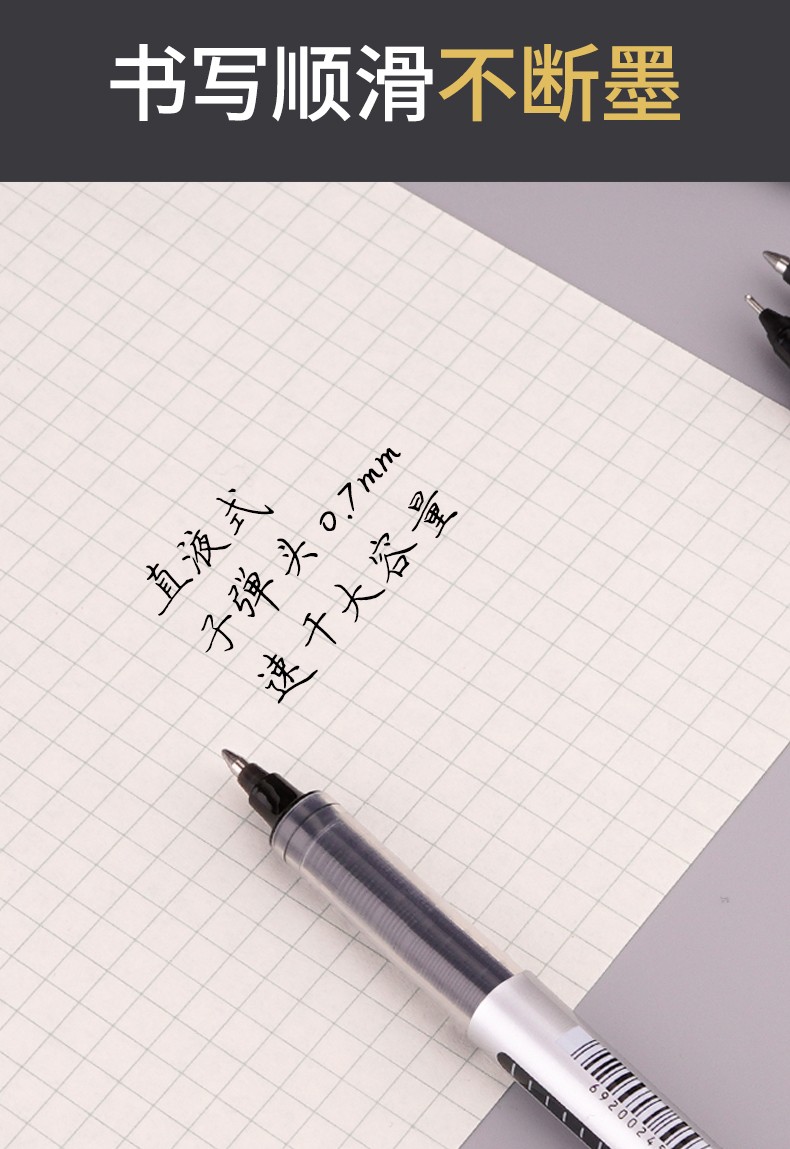 书写顺滑不断墨
直液式
子弹头0.7mm
速干大容量
69200245